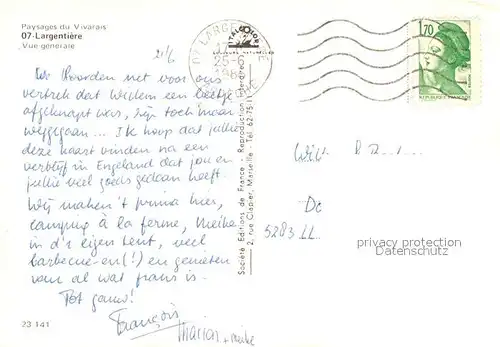 Paysages du Vivarais
07-Largentière
Vue générale
We hoorden net voor ons
vertrek dat Willem een beetje
afgeknapt was, zijn toch maar
weggegaan... Ik hoop dat jullie
deze kaart vinden na een
verblijf in Engeland dat jou en
jullie veel goeds gedaan heeft.
Wij maken 't prima hier,
camping à la ferme, Meike
in d'r eigen tent, veel
barbecue-en(!) en genieten
van al wat frans is.
Tot gauw!
François
Marian + Meike
23 141
07 LARGENTIERE
25-6
Société Editions de France - Reproduction interdite
2, rue Clapier, Marseille - Tél. 62-75-11
1,70
REPUBLIQUE FRANÇAISE
5283 LL
privacy protection
DatenSchutz